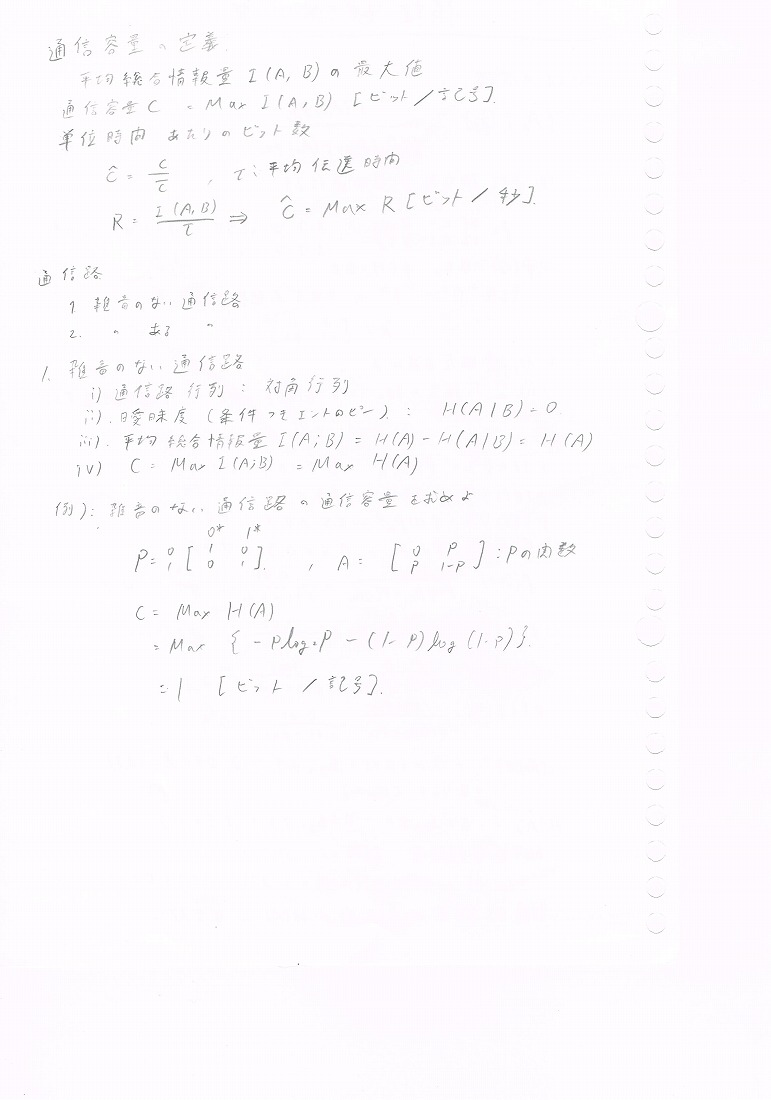 通信容量の定義.
平均総合情報量 I(A, B)の最大値
通信容量C = Max I(A, B) [ビット/記号].
単位時間あたりのビット数
Ĉ = C/τ , τ: 平均伝送時間
R = I(A,B)/τ ⇒ Ĉ = Max R [ビット/秒].
通信路
1. 雑音のない通信路
2. 〃 ある 〃
1. 雑音のない通信路
i) 通信路行列 : 対角行列
ii). 曖昧度 (条件つきエントロピー) : H(A|B) = 0.
iii). 平均総合情報量 I(A;B) = H(A) - H(A|B) = H(A)
iv) C = Max I(A;B) = Max H(A)
例): 雑音のない通信路の通信容量を求めよ
0* 1*
P = 0 [ 1 0
1 0 1 ]. , A = [ 0 P
P 1-P ] : Pの関数
C = Max H(A)
= Max { -P log₂P - (1-P) log (1-P) }.
= 1 [ビット/記号].